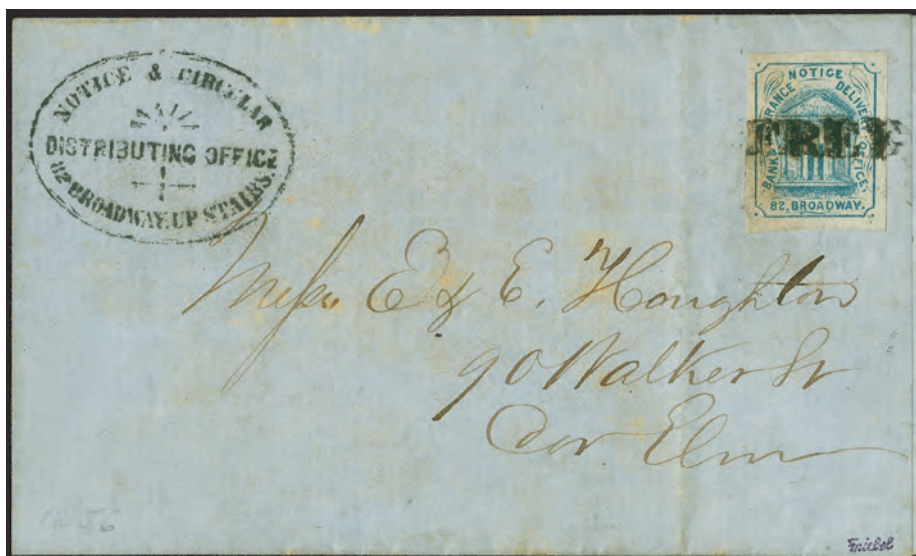 NOTICE & CIRCULAR
DISTRIBUTING OFFICE
82 BROADWAY. UP STAIRS.
NOTICE
BANK & INSURANCE DELIVERY OFFICE.
82, BROADWAY.
FREE
Messrs E & E. Houghton
90 Walker St
Cor Elm
1856